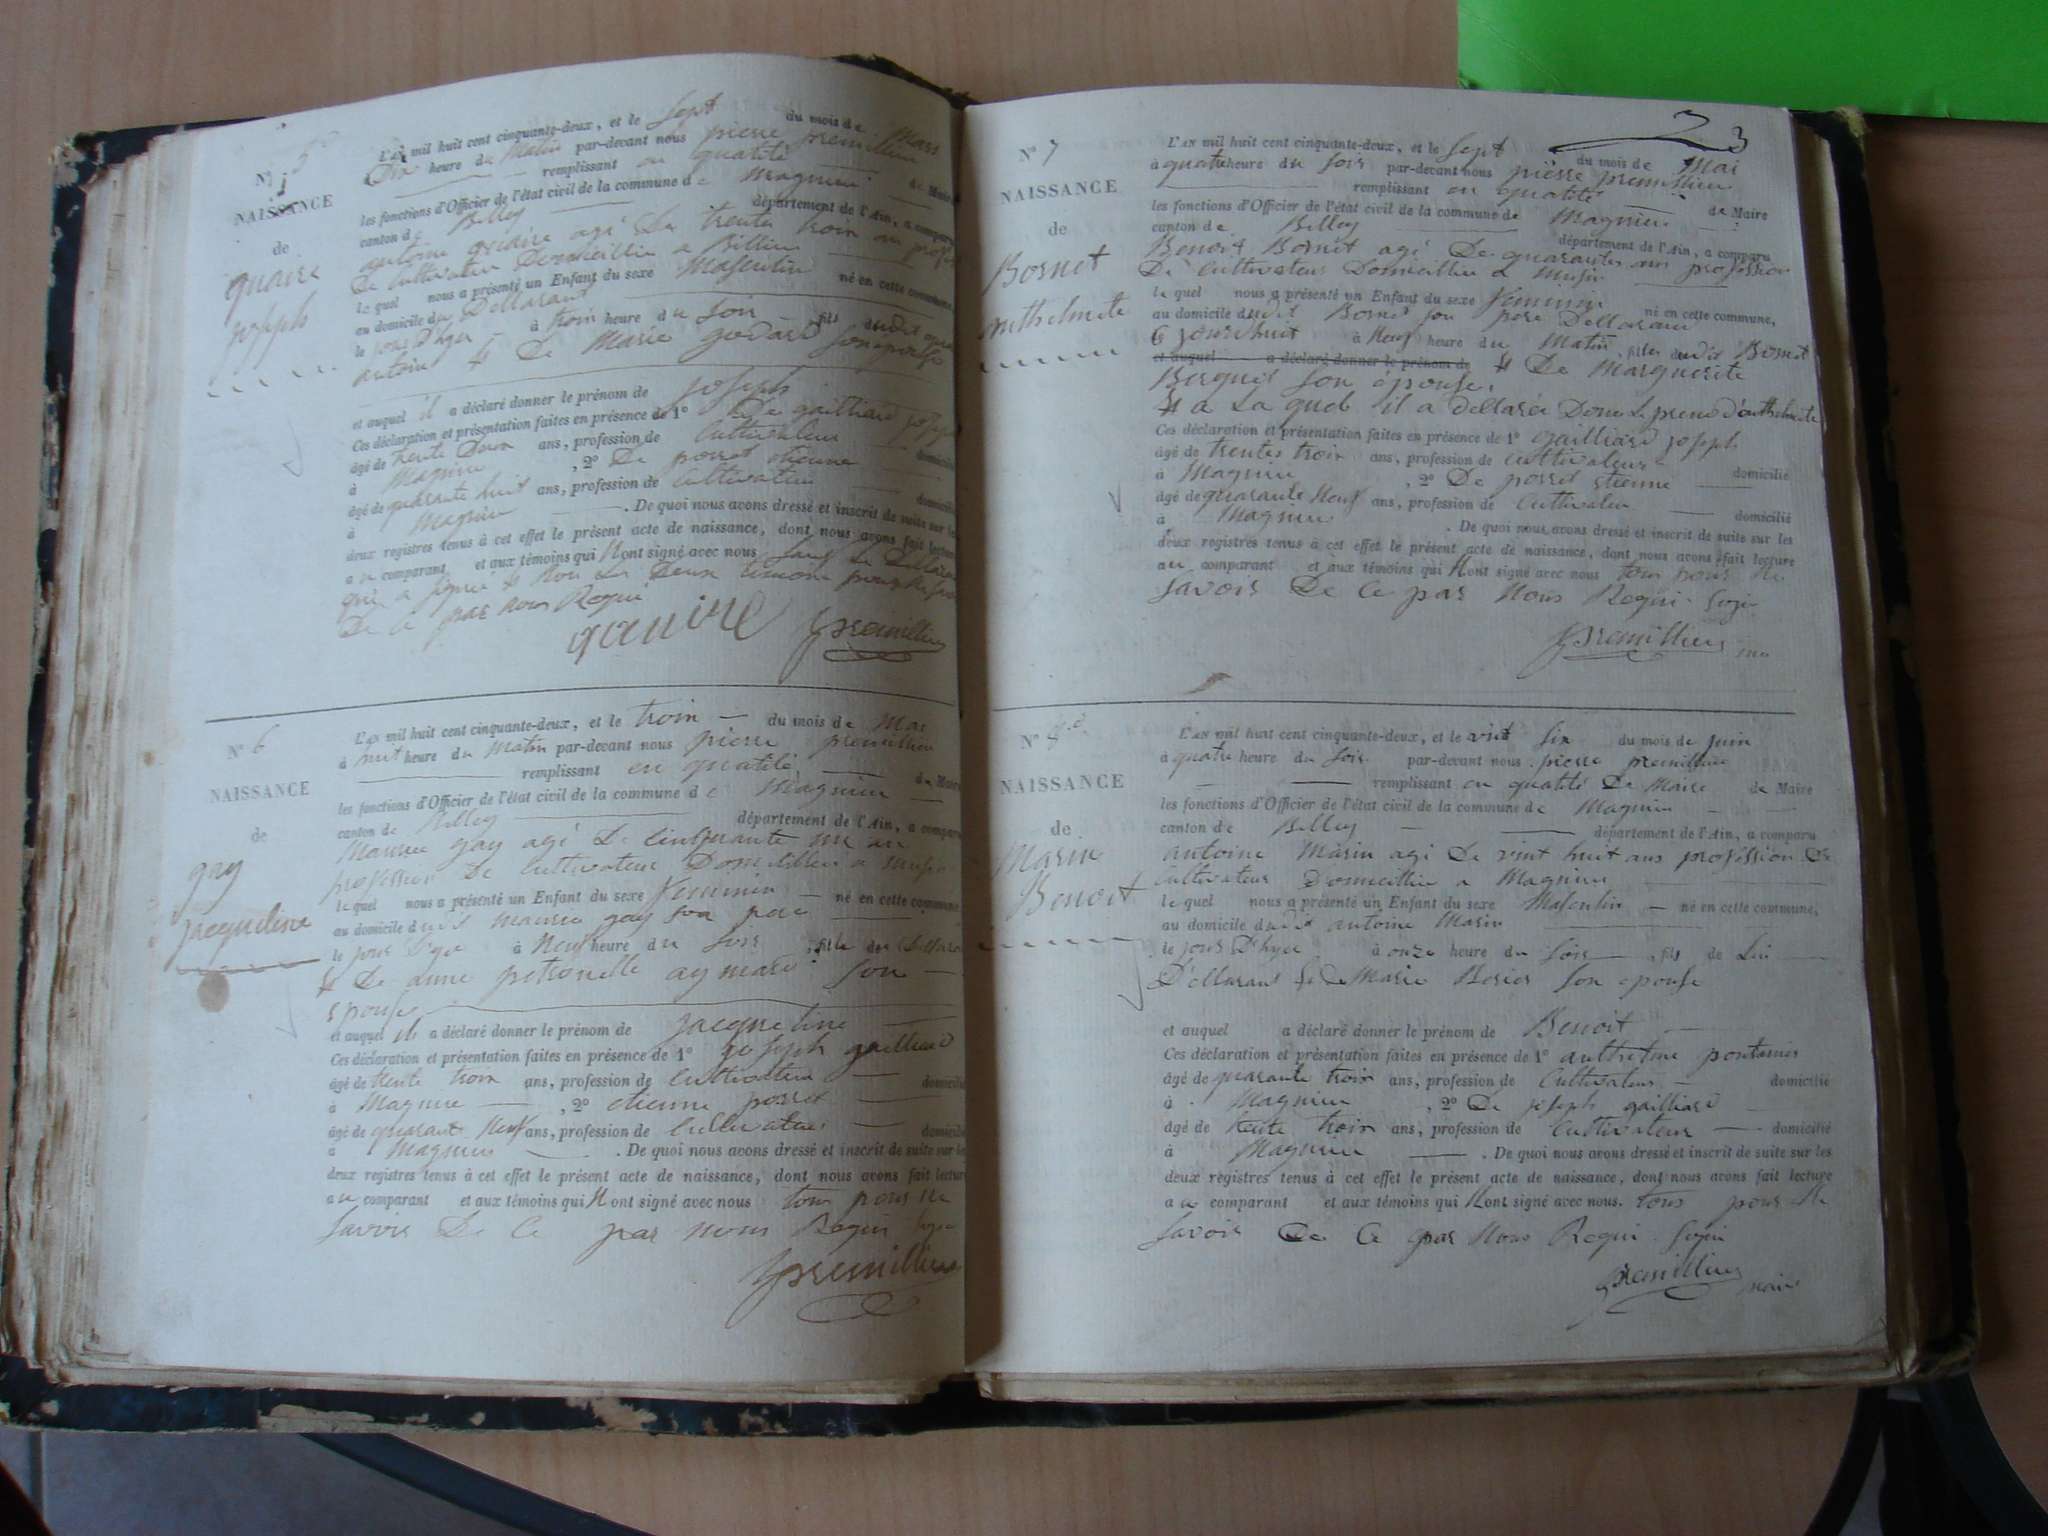 N° 5
NAISSANCE
de
quaire
joseph
L'AN mil huit cent cinquante-deux, et le sept du mois de Mars
à Dix heure du Matin par-devant nous pierre premillieu
remplissant en qualité de Maire
les fonctions d'Officier de l'état civil de la commune de Magnieu
canton de Belley département de l'Ain, a comparu
antoine quaire agé De trente troin an profes
De Cultivateur Domicillie a Billieu
le quel nous a présenté un Enfant du sexe Masculin né en cette commune,
au domicile du Dellarant
le jour D'hyer à troin heure du Soir fils dudit quaire
antoine & De Marie godard Son epouse
et auquel il a déclaré donner le prénom de joseph
Ces déclaration et présentation faites en présence de 1° gailliard joseph
âgé de trente Deux ans, profession de Cultivateur domicilié
à Magnieu , 2° De porret etienne
âgé de quarante huit ans, profession de Cultivateur domicilié
à Magnieu . De quoi nous avons dressé et inscrit de suite sur les
deux registres tenus à cet effet le présent acte de naissance, dont nous avons fait lecture
au comparant et aux témoins qui Nont signé avec nous Sauf le Dellarant
qui a signé & Non les Deux temoins pour ne savoir
De Ce par nous Requi
quaire premillieu
N° 6
NAISSANCE
de
gay
jacqueline
L'AN mil huit cent cinquante-deux, et le troin du mois de Mai
à nuit heure du Matin par-devant nous pierre premillieu
remplissant en qualité de Maire
les fonctions d'Officier de l'état civil de la commune de Magnieu
canton de Belley département de l'Ain, a comparu
Maurice gay agé De cinquante un an
profession De Cultivateur Domicillie a
le quel nous a présenté un Enfant du sexe Feminin né en cette commune,
au domicile dudit Maurice gay Son père
le jour D'yer à Neuf heure du Soir , fille du Dellarant
& De anne petronelle aymard Son
epouse
et auquel il a déclaré donner le prénom de jacqueline
Ces déclaration et présentation faites en présence de 1° joseph gailliard
âgé de trente troin ans, profession de Cultivateur domicilié
à Magnieu , 2° etienne porret
âgé de quarant Neuf ans, profession de Cultivateur domicilié
à Magnieu . De quoi nous avons dressé et inscrit de suite sur les
deux registres tenus à cet effet le présent acte de naissance, dont nous avons fait lecture
au comparant et aux témoins qui Nont signé avec nous tous pour ne
Savoir De Ce par nous Requi
premillieu
23
N° 7
NAISSANCE
de
Bornet
anthelmete
L'AN mil huit cent cinquante-deux, et le Sept du mois de Mai
à quatre heure du Soir par-devant nous pierre premillieu
remplissant en qualité de Maire
les fonctions d'Officier de l'état civil de la commune de Magnieu
canton de Belley département de l'Ain, a comparu
Benoit Bornet agé De quarantes ans profession
De Cultivateur Domicillie a Musin
le quel nous a présenté un Enfant du sexe Feminin né en cette commune,
au domicile dudit Bornet Son pere Dellarant
Ce jourdhuit à Neuf heure du Matin , fille dudit Bornet
et auquel a déclaré donner le prénom de & De Marguerite
Berquet Son épouse,
& a La quel il a dellarée Donne Le prenom d'anthelmete
Ces déclaration et présentation faites en présence de 1° gailliard joseph
âgé de trentes troin ans, profession de Cultivateur domicilié
à Magnieu , 2° De porret etienne
âgé de quarante Neuf ans, profession de Cultivateur domicilié
à Magnieu . De quoi nous avons dressé et inscrit de suite sur les
deux registres tenus à cet effet le présent acte de naissance, dont nous avons fait lecture
au comparant et aux témoins qui Nont signé avec nous tous pour Ne
Savoir De Ce par Nous Requi
premillieu
N° 8
NAISSANCE
de
Marin
Benoit
L'AN mil huit cent cinquante-deux, et le vint Six du mois de juin
à quatre heure du Soir par-devant nous pierre premillieu
remplissant en qualité De Maire de Maire
les fonctions d'Officier de l'état civil de la commune de Magnieu
canton de Belley département de l'Ain, a comparu
antoine Marin agé De vint huit ans profession De
Cultivateur Domicillie a Magnieu
le quel nous a présenté un Enfant du sexe Masculin né en cette commune,
au domicile dudit antoine Marin
le jour D'hyer à onze heure du Soir , fils de Lui
Dellarant & de Marie Son epouse
et auquel a déclaré donner le prénom de Benoit
Ces déclaration et présentation faites en présence de 1°
âgé de quarante troin ans, profession de Cultivateur domicilié
à Magnieu , 2° De joseph gailliard
âgé de trente troin ans, profession de Cultivateur domicilié
à Magnieu . De quoi nous avons dressé et inscrit de suite sur les
deux registres tenus à cet effet le présent acte de naissance, dont nous avons fait lecture
au comparant et aux témoins qui Nont signé avec nous. tous pour Ne
Savoir De Ce par Nous Requi
premillieu maire